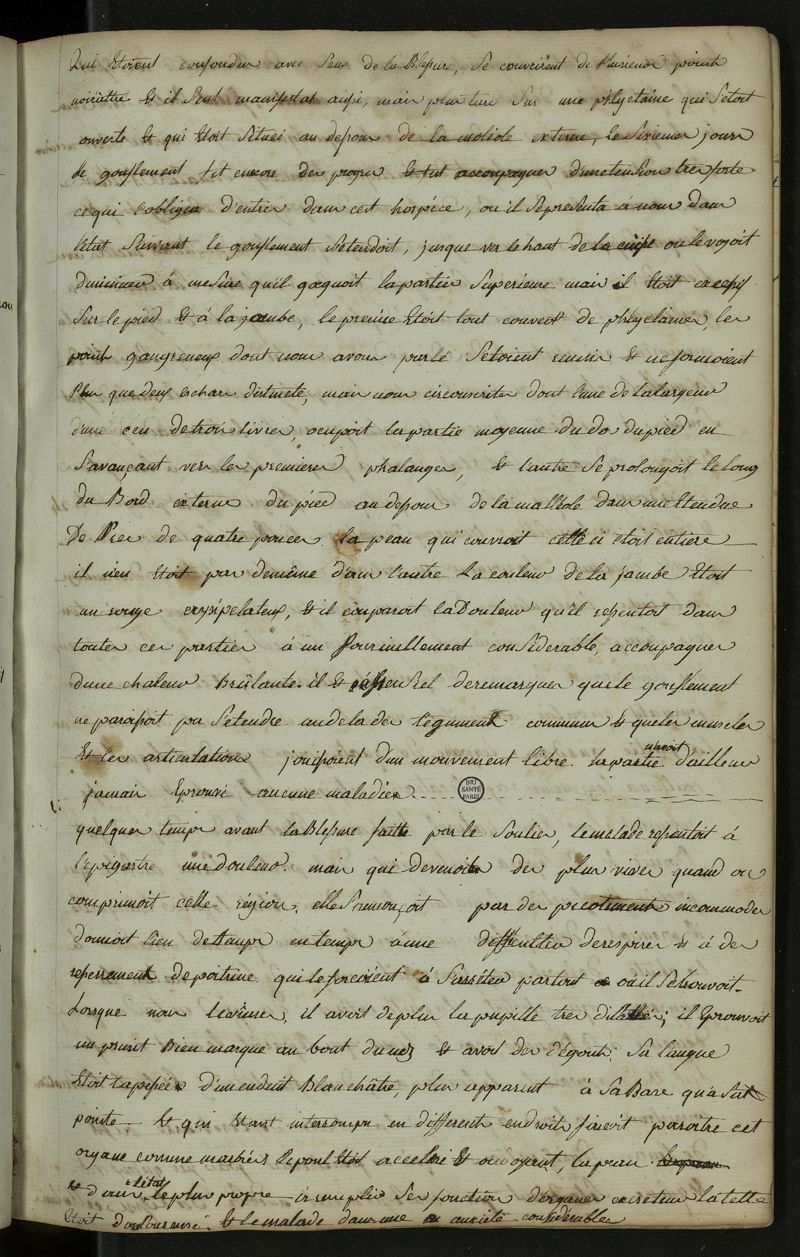 qui Etoient confondu avec Ceux de la Blessure, se couvrirent de Plusieurs points
noirattre Et il s'Est manifestat aussi, mais plus tard sur une phlyctaine qui s'etoit
ouverte Et qui Etoit Situeé au dessous de la maleole externe, le sixieme jour
le gonflement fit encore des progres Et fut accompagner d'une tension tres forte
ce qui l'obligea d'entrer dans cest hospice, ou il se presenta a nous dans
l'état Suivant le gonflement s'etendoit, jusque vers le haut de la cuisse ou le voyoit
diminuer à mesure qu'il gagnoit la partie Superieure mais il Etoit excessif
Sur le pied Et à la jambe, le premier Etoit tout couvert de phlyctaines, les
points gangreneux dont nous avons parlé s'etoient reunis Et ne formoient
Plus que deux Echares distincte, mais non circonscrites dont l'une de la largeur
d'une ecu de trois livres, ocupoit la partie moyenne du dos du pied en
s'avançant vers les premieres phalanges, Et l'autre se prolongoit le long
du Bord externe du pied au dessous de la malleole dans une Ettendue
De Pres de quatre pouces la peau qui couvroit celle ci etoit entiere
il n'en Etoit pas de même dans l'autre La couleur de la jambe Etoit
un rouge erysipelateux, Et il comparoit la Douleur qu'il ressentoit dans
toutes ces parties à un fourmillement considerable, accompagner
d'une chaleur Brûlante. il Est essentiel de remarquer que le gonflement
ne paroissoit pas s'etendre au dela des tegument commun Et que les muscles
Et les articulations jouissoient d'un mouvement libre. la partie n'avoit d'ailleurs
jamais Eprouvé aucune maladie.
BIU SANTÉ PARIS
quelques temps avant la Blessure faitte par le Soulier, le malade ressentoit à
l'epigastre une douleur. mais qui devenoit des plus vives quand on
comprimoit cette région, elle s'annonçoit par des picotements incommodes
donnoit lieu de temps en temps à une difficulter de respirer Et à des
resserrement de poitrine qui le forcoient à s'arrêter partout ou il se trouvoit.
Lorsque nous le vimes, il avoit de plus la pupille tres dilattée; il Eprouvoit
un prurit Bien marque au bout du nez Et avoit des dégouts; Sa langue
Etoit tapissée d'un enduit Blanchâtre, plus apparent à Sa Base qu'a Sa
pointe. Et qui Etant interrompu en different endroits faisoit paroitre cet
organe comme marbré le pouls Etoit acceleré Et ondoyant, la peau
dans l'état le plus propre à remplir Ses fonction d'organe excreteur la tette
Etoit douloureuse. Et le malade dans une anxieté considerable